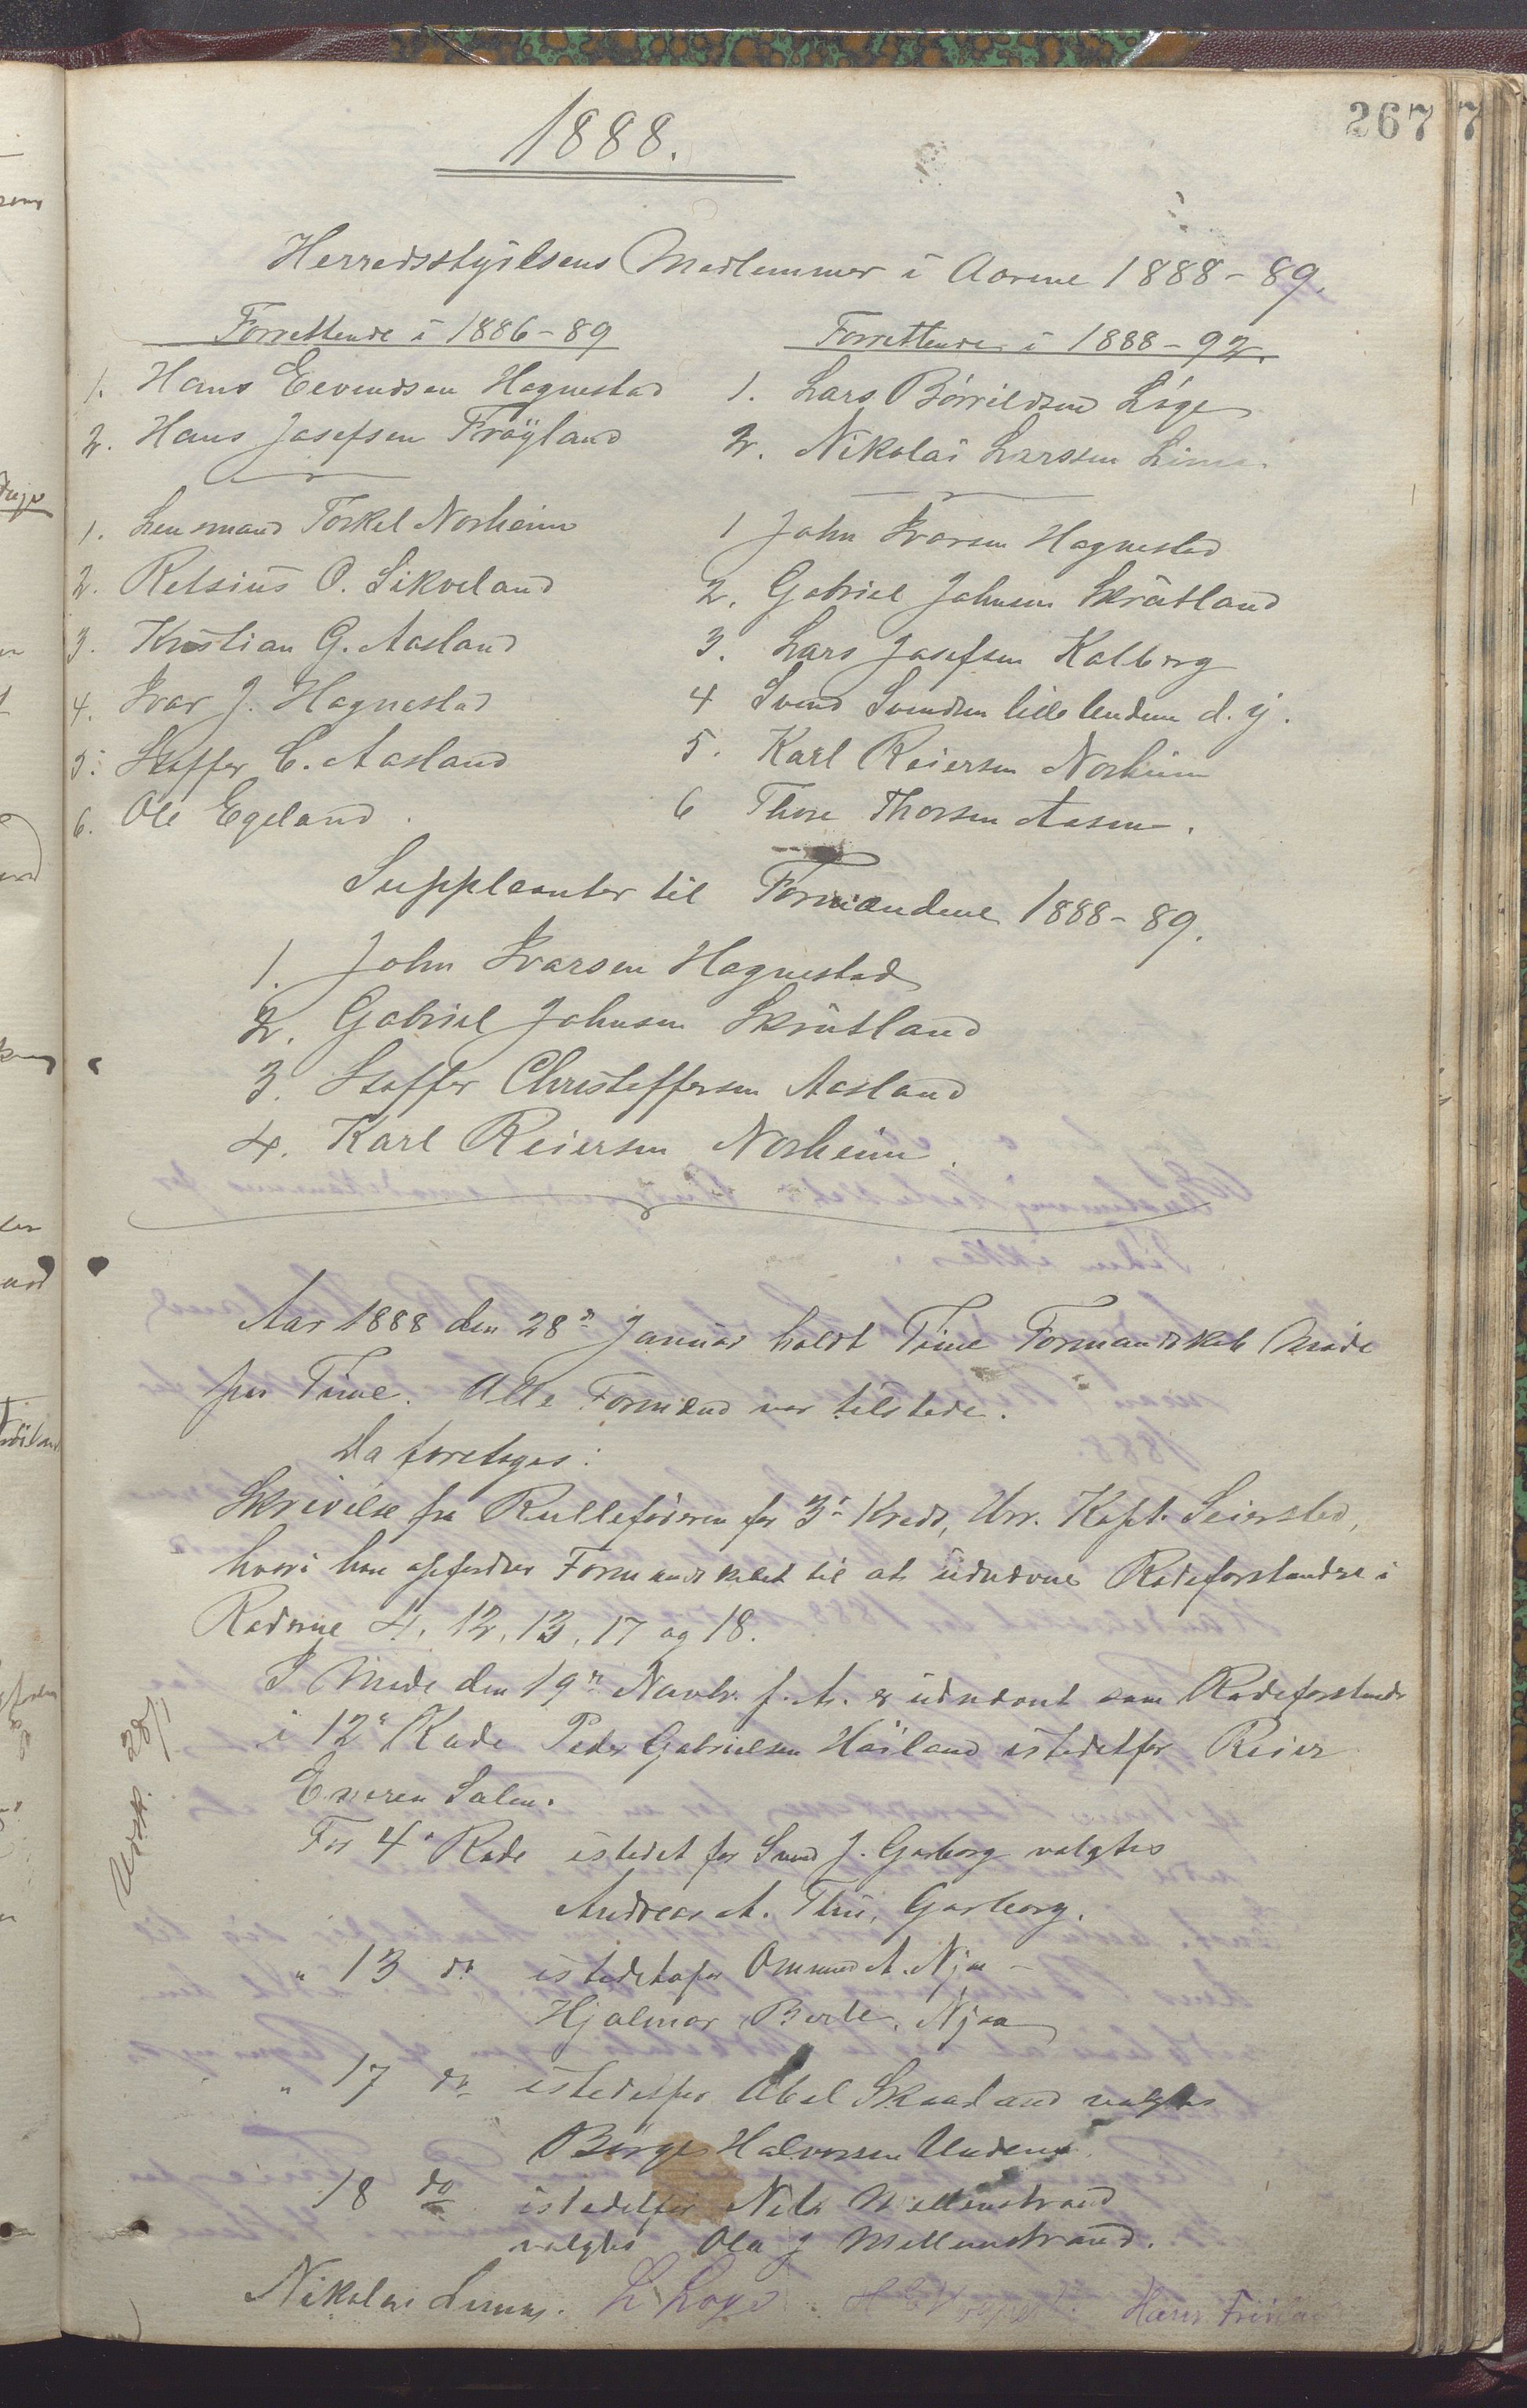 267
1888.
Herredsstyrelsens Medlemmer i Aarene 1888-89.
Forrettende i 1886-89
1. Hans Eevendsen Hognestad
2. Hans Josefsen Frøyland
1. Lensmand Torkel Norheim
2. Retsius O. Sikveland
3. Kristian G. Aasland
4. Ivar J. Hognestad
5. Staffer C. Aasland
6. Ole Egeland.
Forrettende i 1888-92.
1. Lars Børrildsen Løge
2. Nikolai Larssen Lima.
1 John Ivarsen Hognestad
2. Gabriel Johnsen Skrudland
3. Lars Josefsen Kalberg
4 Svend Svendsen lille Undem d. y.
5. Karl Reiersen Norheim
6 Thore Thorsen Aasen.
Suppleanter til Formændene 1888-89.
1. John Ivarsen Hognestad
2. Gabriel Johnsen Skrudland
3. Staffer Christoffersen Aasland
4. Karl Reiersen Norheim.
Aar 1888 den 28de Januar holdt Time Formandskab Møde
paa Time. Alle Formænd var tilstede.
Da foretoges:
Skrivelse fra Rulleføreren for 3die Kreds, Hrr. Kapt. Seiersted,
hvori han opfordrer Formandskabet til at udnævne Rodeforstandere i
Roderne 4, 12, 13, 17 og 18.
I Møde den 19de Novbr. f. A. er udnævnt som Rodeforstander
i 12te Rode Peder Gabrielsen Høiland istedetfor Reier
Salen.
For 4de Rode istedet for Svend J. Garborg valgtes
Andreas A. Thu, Garborg.
" 13 do istedetfor Ommund A. Njaa -
Hjalmar Berle, Njaa
" 17 do istedetfor Abel Skaaland valgtes
Børge Halvorsen Undem.
18 do istedetfor Nils Mellemstrand
valgtes Ola J Mellemstrand.
Udsk. 28/1
Nikolai Lima. L Løge. Hans Frøiland